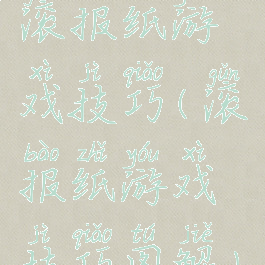 滚报纸游
xì jì qiǎo gǔn
戏技巧(滚
bào zhǐ yóu xì
报纸游戏
jì qiǎo tú jiě
技巧图解)